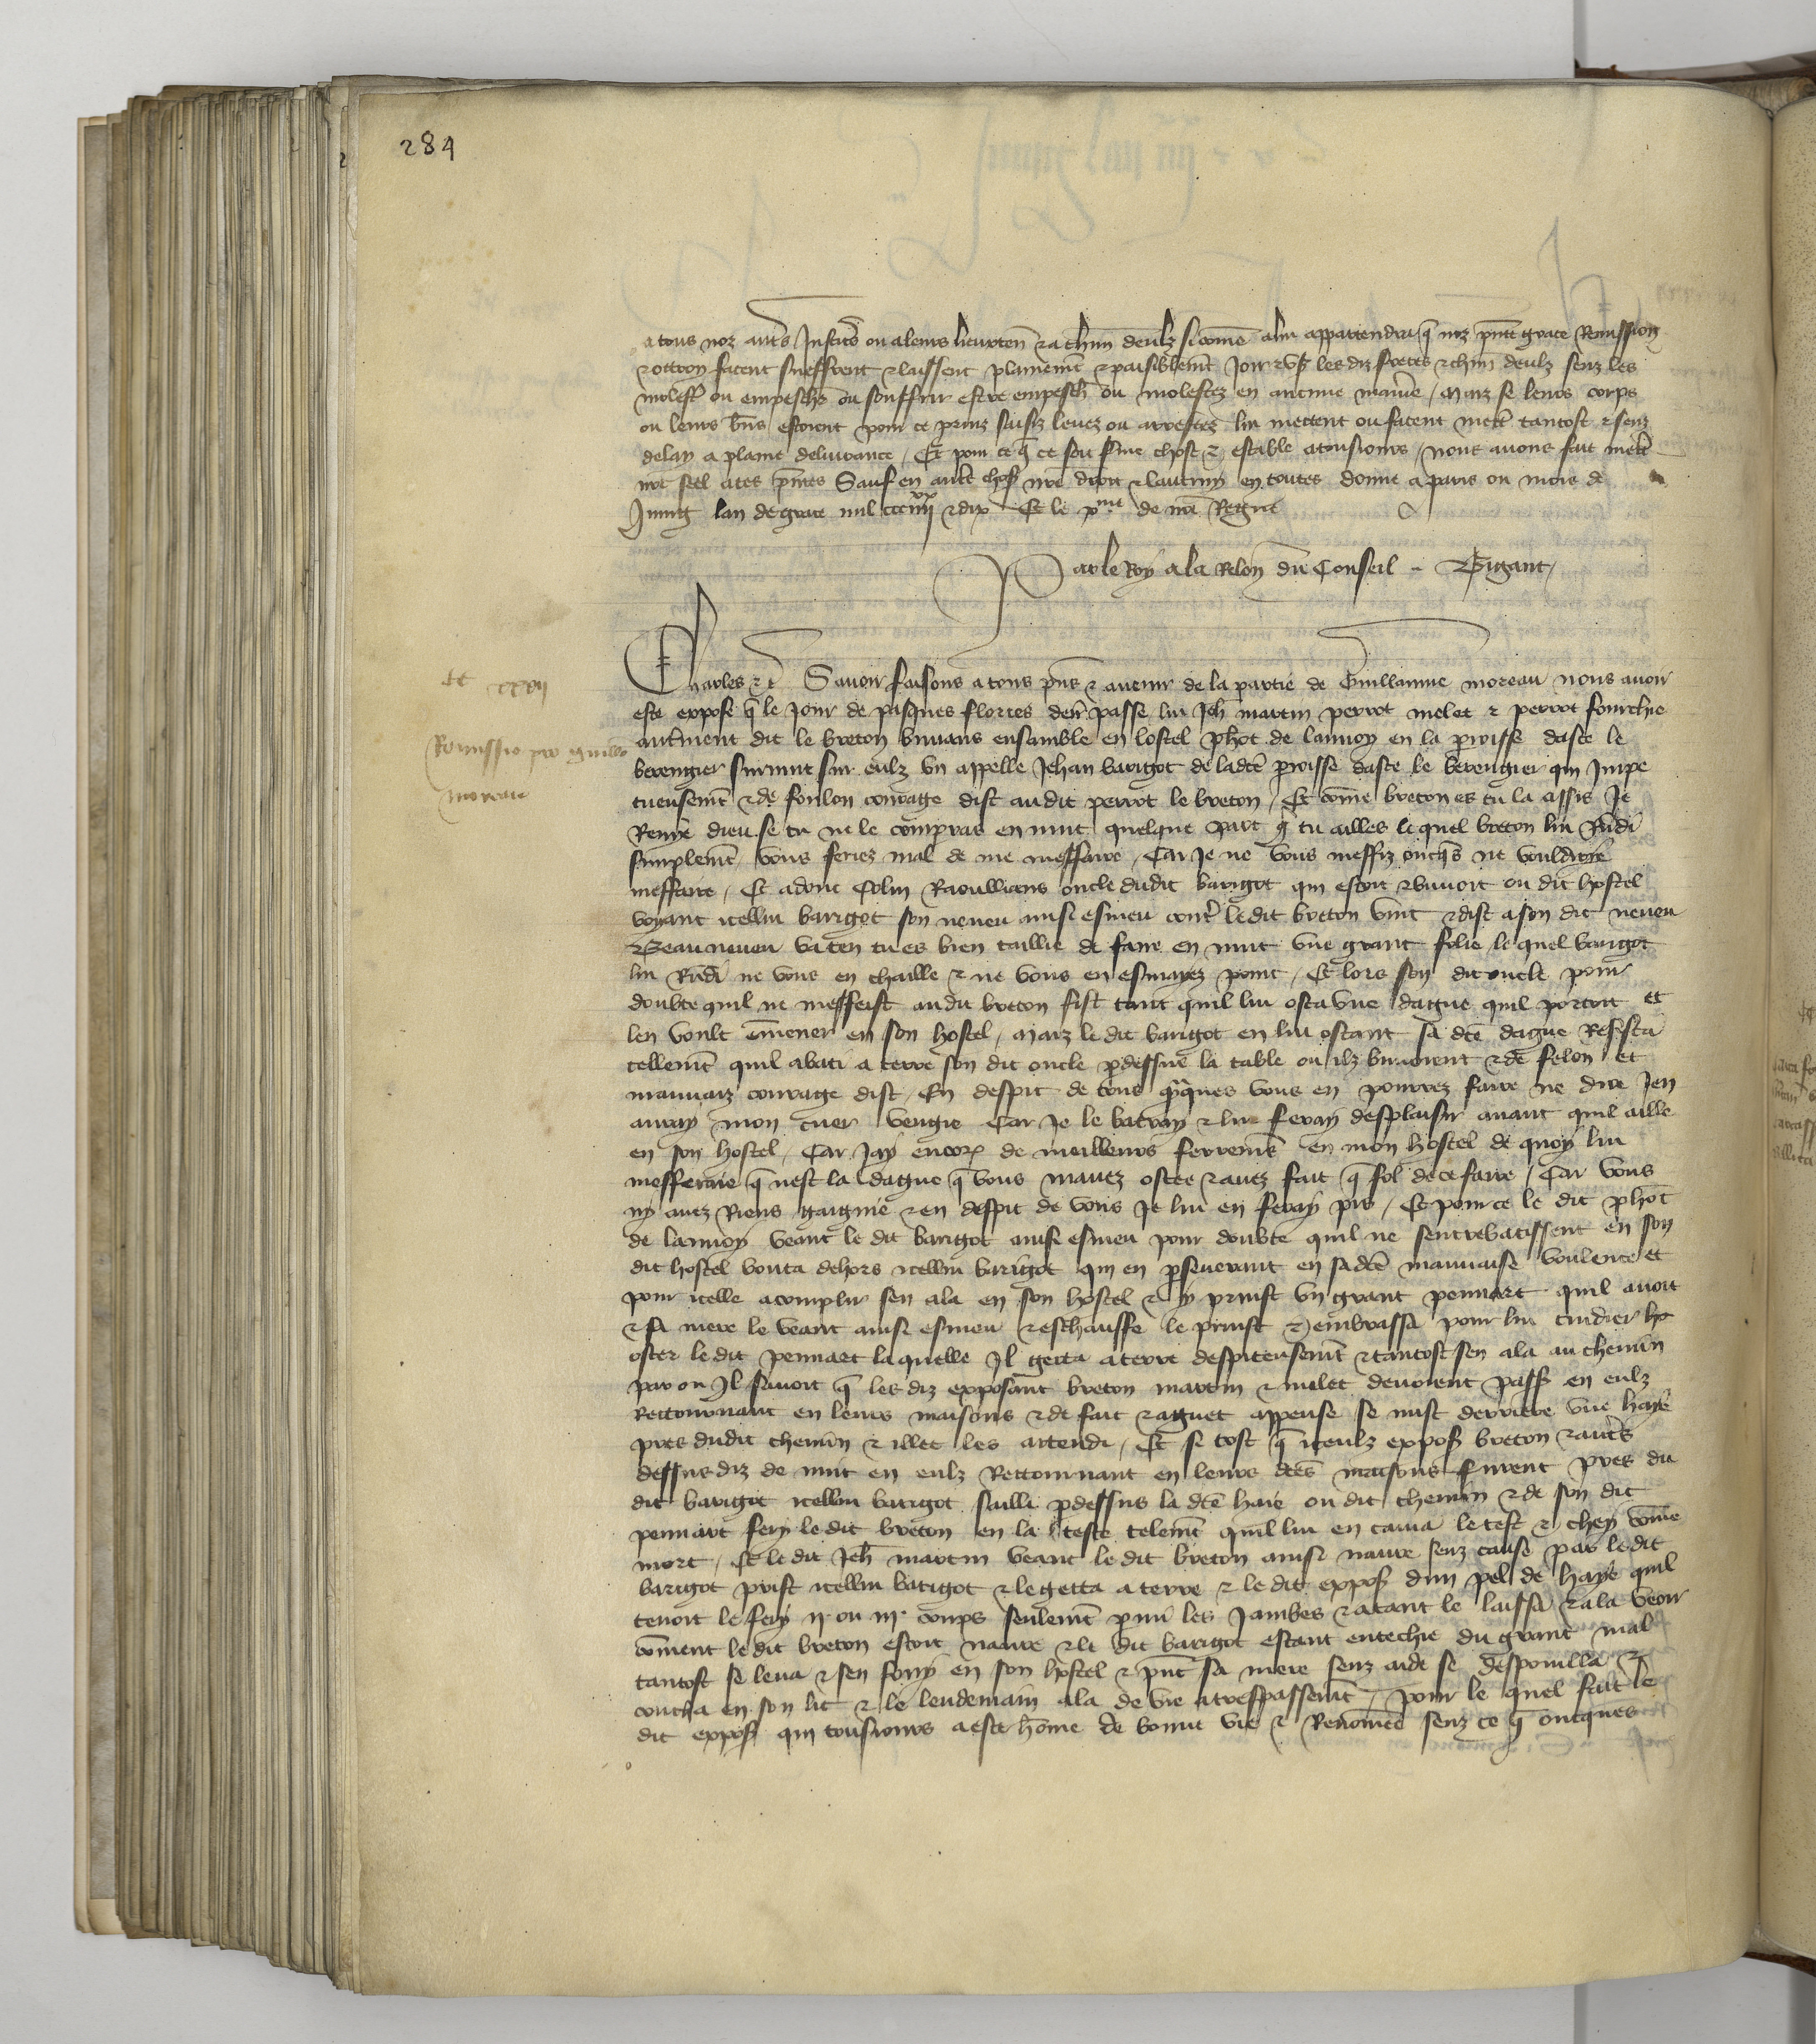 284
a tous noz autres Justiciers ou a leurs lieuxten et a chun deulz si come a lui appartendra q noz pnte grace Remission
et ottroy facent sueffrent et laissent plainemt et paisiblemt Joir et us les diz freres et chun deulz senz les
molest ou empesch ou souffrir estre empesch ou molestez en aucune maniere / Maiz se leurs corps
ou leurs bns estoient pour ce prins saisiz levez ou arrestez lui mettent ou facent mett tantost et senz
delay a plaine delivrance / Et pour ce q ce soit ferme chose et estable a tousiours / nous avons fait mett
nre seel a ces pntes Sauf en autre chos nre droit et lautruy en toutes donne a paris ou mois de
Juing lan de grace mil ccc iiij xx et dix Et le xme de nre Regne
Par le Roy a la Relon du Conseil - Gigant
Charles etc Savoir faisons a tous pns et avenir de la partie de Guillaume moreau nous avoir
este expose q le Jour de pasques flories derr passe lui Jeh martin perrot melet et perrot fourchie
autrement dit le breton buvans ensamble en lostel phot de lannoy en la proisse dasce le
berengier survint sur eulz un appelle Jehan barigot de ladte proisse dasce le berengier qui Impe
tueusemt et de foulon courage dist au dit perrot le breton / Et come breton es tu la assis Je
Renye dieu se tu ne le compras en nuit quelque part q tu ailles le quel breton lui Rndi
simplemt vous feriez mal de me meffaire / Car Je ne vous meffiz onqs ne vouldroie
meffaire / Et adonc Colin Raoulliens oncle dudit barigot qui estoit et buvoit ou dit hostel
voyant icellui barigot son neveu ainsi esmeu cont ledit breton vint et dist a son dit neveu
Beau neveu va ten tu es bien taillie de faire en nuit une grant folie le quel barigot
lui Rndi ne vous en chaille et ne vous en esmayez point / Et lors son dit oncle pour
doubte quil ne meffeist au dit breton fist tant quil lui osta une dague quil portoit et
len voult emener en son hostel / Maiz le dit barigot en lui ostant sa dte dague Resista
tellemt quil abati a terre son dit oncle pdessus la table ou ilz buvoient et de felon et
mauvaiz courage dist / En despit de tous qqques vous en pourrez faire ne dire Jen
auray mon cuer vengie Car Je le batray et lui feray desplaisir avant quil aille
en son hostel / Car Jay encor de meilleurs ferremens en mon hostel de quoy lui
mefferaie q nest la dague q vous mavez ostee et avez fait q fol de ce faire / Car vous
ny avez Riens gaignie et en despit de vous Je lui en feray pis / Et pour ce le dit phot
de lannoy veant le dit barigot ainsi esmeu pour doubte quil ne sentrebatissent en son
dit hostel bouta dehors icellui barigot qui en pseverant en sadte mauvaise voulente et
pour icelle acomplir sen ala en son hostel et y prinst un grant pennart quil avoit
et sa mere le veant ainsi esmeu et eschauffe le prinst et embrassa pour lui cuidier
oster le dit pennart laquelle Il getta a terre despiteusemt et tantost sen ala au chemin
par ou Il savoit q les diz exposant breton martin et melet devoient pass en eulz
Rettournant en leurs maisons et de fait et aguet appense se mist derriere une haye
pres dudit chemin et illec les attendi / Et si tost q iceulz expos breton et autres
dessus diz de nuit en eulz Rettournant en leurs dtes maisons furent pres du
dit barigot icellui barigot sailli pdessus la dte haie ou dit chemin et de son dit
pennart fery le dit breton en la teste telemt quil lui en cava le test et chey come
mort / Et le dit Jeh martin veant le dit breton ainsi navre senz cause par le dit
barigot prist icellui barigot et le getta a terre et le dit expos dun pel de haye quil
tenoit le fery ij ou iij coups seulemt pmi les Jambes et atant le laissa et ala veoir
coment le dit breton estoit navre et le dit barigot estant entechie du grant mal
tantost se leva et sen fouy en son hostel et pnt sa mere senz aide se despouilla et
coucha en son lit et le lendemain ala de vie a trespassemt / pour le quel fait le
dit expos qui tousiours a este home de bonne vie et Renomee senz ce q oncques
Remissio pro Guillo
moreau